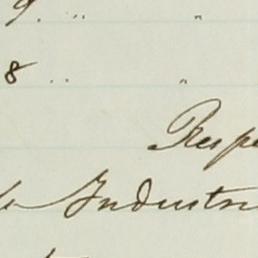 9 . " "
8 . . "
Resp
Industri